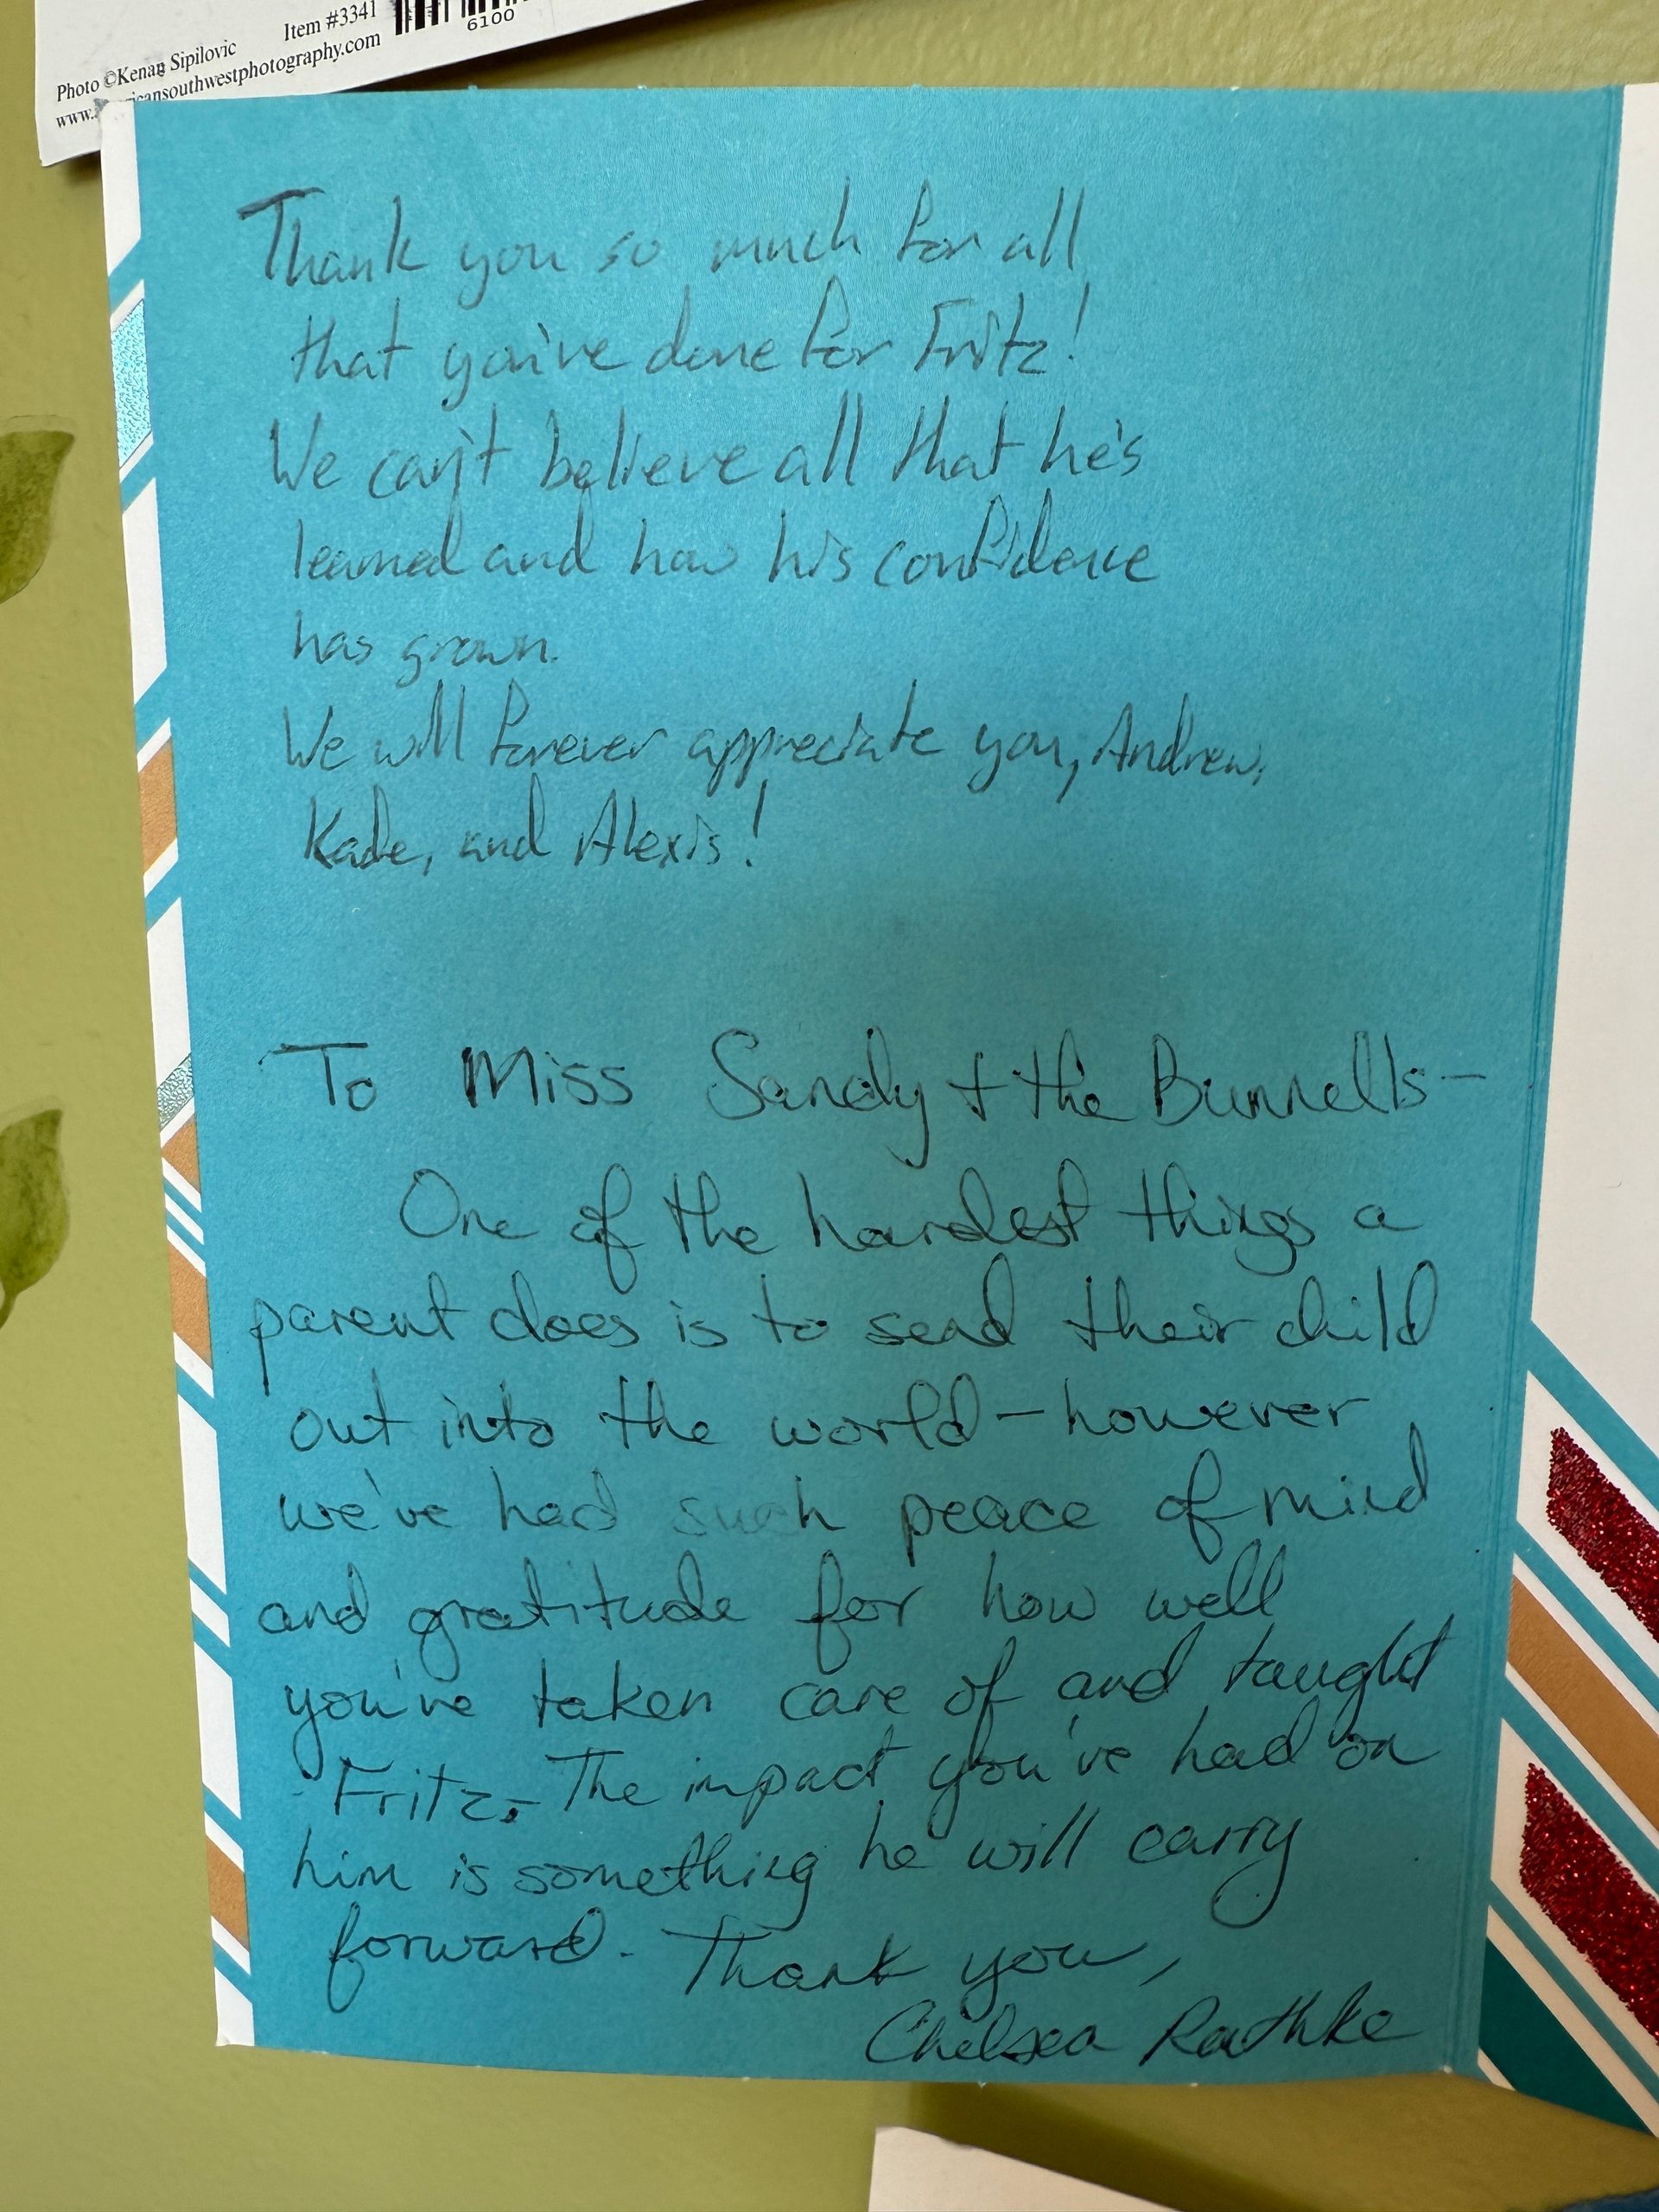 Item #3341
6100
Photo ©Kenan Sipilovic
www.americansouthwestphotography.com
Thank you so much for all
that you've done for Fritz!
We can't believe all that he's
learned and how his confidence
has grown.
We will forever appreciate you, Andrew,
Kade, and Alexis!
To Miss Sandy + the Bunnells-
One of the hardest things a
parent does is to send their child
out into the world - however,
we've had such peace of mind
and gratitude for how well
you've taken care of and taught
Fritz. The impact you've had on
him is something he will carry
forward. Thank you,
Chelsea Rathke